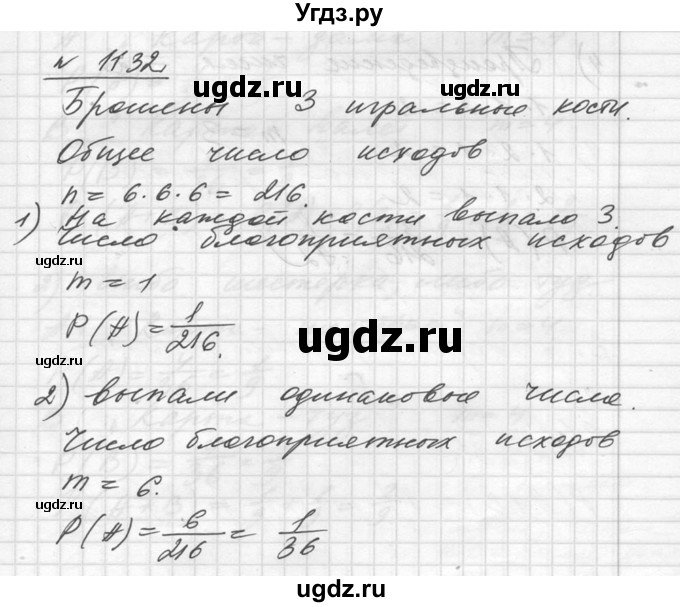 Угдз.ру
№ 1132
Брошены 3 игральные кости.
Общее число исходов
n = 6·6·6 = 216.
1) На каждой кости выпало 3.
Число благоприятных исходов
m = 1
P(A) = 1/216.
2) выпали одинаковые числа.
Число благоприятных исходов
m = 6.
P(A) = 6/216 = 1/36
ugdz.ru
ugdz.ru
ugdz.ru
ugdz.ru
ugdz.ru
ugdz.ru
ugdz.ru
ugdz.ru
ugdz.ru
ugdz.ru